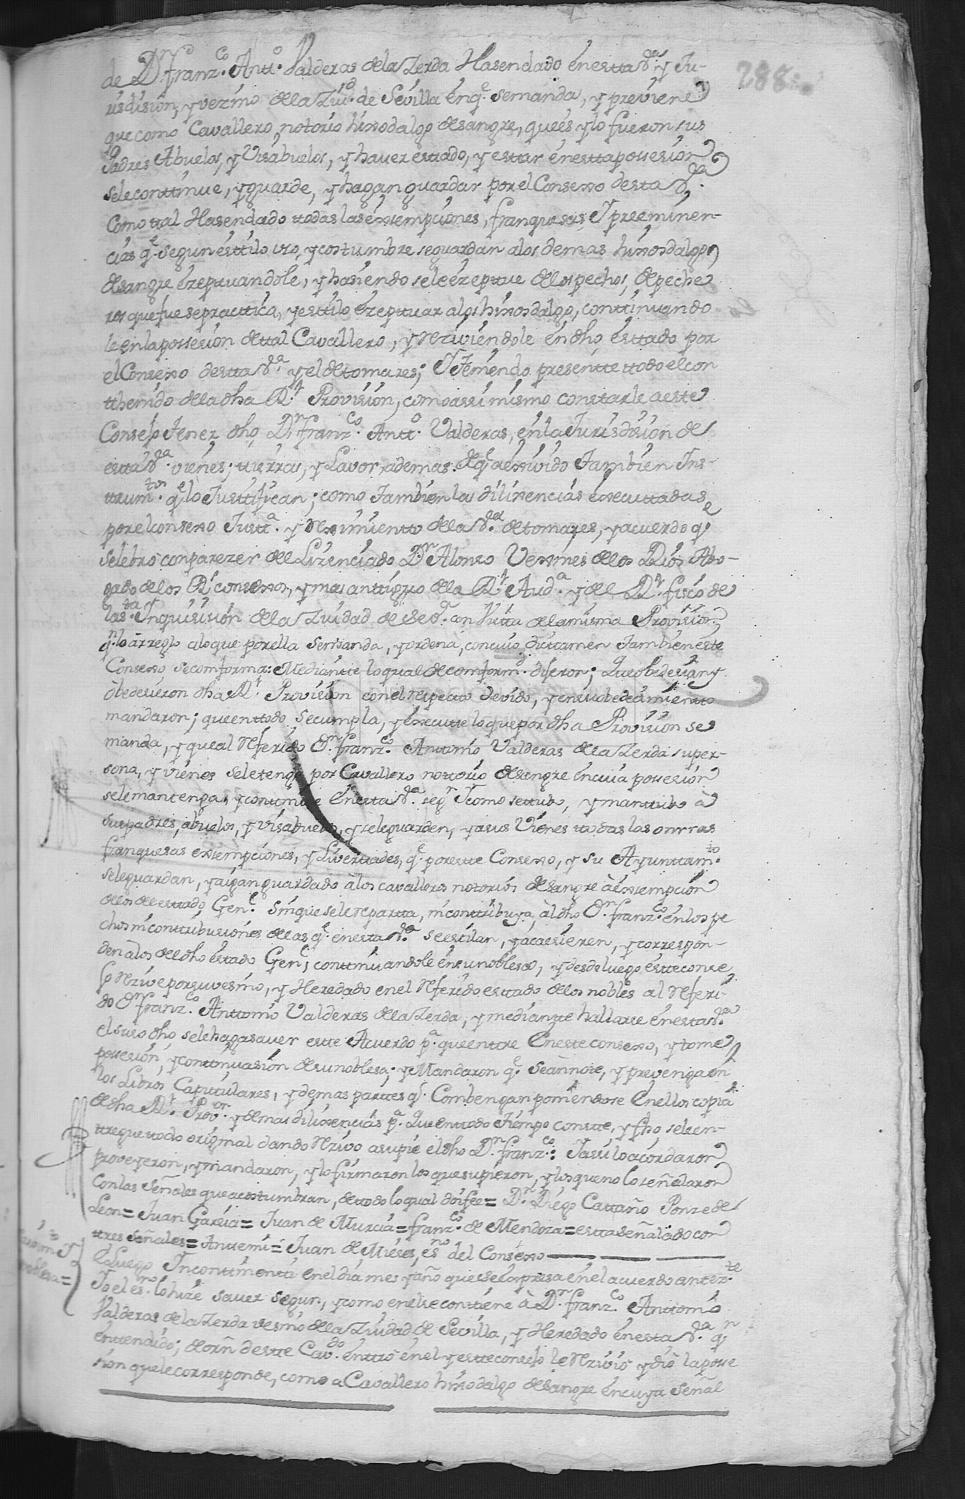 288
de Dn. Franzco. Antto. Valderas de la Zerda Hasendado én estta Va. y Ju-
risdision, y vezino de la Ziud. de Sevilla én q. se manda, y previene
que como Cavallero, notorio hijosdalgo de sangre, que és y lo fueron sus
Padres Abuelos, y Visabuelos, y haver estado, y esttar én estta possesión
se le conttinue, y guarde, y hagan guardar por el Consexo de sta Va.
Como ttal Hasendado ttodas las éxsempciones, franquesas, Y preeminen-
cias q. segun esttilo uso, y costtumbre se guardan a los demas hijosdalgo
de sangre éxsepttuandole, y hasiendo se le éxsepttue de los pechos, de peche
ros que fuese practtica, y esttilo éxsepttuar a los hijosdalgo, conttinuando
le en la possesión de ttal Cavallero, y Rziviendole én dho. esttado por
el Consexo de estta Va. y el de tomares; Y Ttemendo presentte ttodo el con
tthenido de la dha Rl. Provisión, como assi mismo consttarle a este
Consejo Tener dho. Dn. Franzco. Antto. Valderas, én la Jurisdision de
estta Va. viénes; tierras, y Lavor, ademas de q. a éxsivido Tambien Ins-
trumtos. q. lo Justtifican; como Tambien las dilixencias éxsecuttadas
por el consexo Justta. y Reximientto de la Va. de tomares, y acuerdo q.
selebró con parezer del Lizenciado Dn. Alonso Vermes de los Rios Abo-
gado de los Rs. consexos, y mas anttiguo de la Rl. Auda. y del Rl. fisco de
la Sta. Ynquisision de la Ziudad de Seva. con Vistta de la misma Provision
q. lo àrreglo a lo que por ella se manda, y ordena, con cuio Dicttamen Tambien este
Consexo se conforma: Mediantte lo qual de conformd. dixeron; Que obedesian y
obedesieron dha Rl. Provision con el respecto devido, y en su obedesimientto
mandaron; que en ttodo se cumpla, y éxsecutte lo que por dha Provisión se
manda, y que al Referido Dn. Franzco. Anttonio Valderas de la Zerda su per-
sona, y viénes se le tenga por Cavallero notorio de sangre én cuia possesión
se le manttenga, y conttinue én estta Va. segn. Y como se ttubo, y manttubo à
sus padres, abuelos, y visabuelos, y se le guarden, y a sus Viénes ttodas las onrras
franquesas éxsempciones, y Livertades, q. por este Consexo, y su Ayunttamto.
se le guardan, y aigan guardado à los cavalleros notorios de sangre à éxsempción
de los de esttado Genl. sin que se le repartta, ni conttribuya, àl dho Dn. Franzco. én los pe
chos ni conttribusiónes de las q. én estta Va. se esttilan, y acaesieren, y correspon-
den a los de dho éstado Genl; conttinuandole én su noblesa, y desde luego este conse
jo Rzive por su vesino, y Heredado en el Referido esttado de los nobles al Referi-
do Dn. Franzco. Anttonio Valderas de la Zerda, y mediantte hallarse én estta Va.
el suso dho se le haga saver estte Acuerdo pa. que enttre én este consexo, y tome
possesion, y conttinuasión de su noblesa; y Mandaron q. se annotte, y prevenga en
los Libros Capittulares, y demas parttes q. Combengan poniendose én ellos copia
de dha Rl. Provon. y demas dilixencias pa. Que en ttodo Tiempo constte, y fho se le en-
tregue ttodo original dando Rzivo a su pie el dho Dn. Franzco: Y assi lo acordaron
proveyeron, y mandaron, y lo firmaron los que supieron, y los que no lo señalaron
Con las Señales que acosttumbran, de ttodo lo qual doi fee = Dn. Diego Casttaño Ponze de
Leon = Juan Garcia = Juan de Murcia = Franzco. de Mendoza = estta señalado con
ttres señales = Anttemi = Juan de Mieres, esno del Consexo
Luego Yncontinenti en el dia mes y año que se éxspresa én el acuerdo antezte.
Yo el esno. lo hize saver segun, y como en él se conttiene à Dn. Franzco Anttonio
Valderas de la Zerda vesino de la Ziudad de Sevilla, y Heredado én estta Va. q.
enttendido; de orn de stte Cavdo. énttró én el y estte consejo le Rzivió y dió la posse
sion que le corresponde, como a Cavallero hijosdalgo de sangre én cuya señal